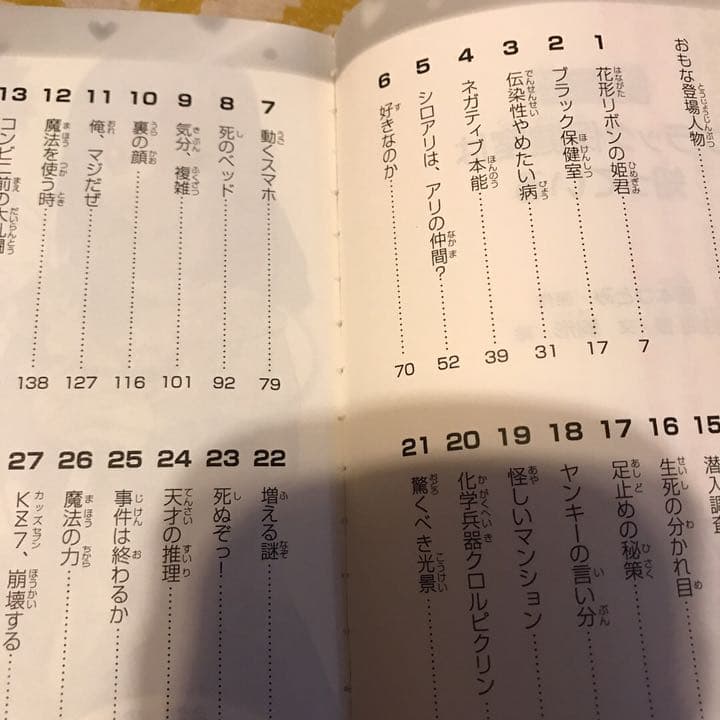 おもな登場人物
1 花形リボンの姫君 7
2 ブラック保健室 17
3 伝染性やめたい病 31
4 ネガティブ本能 39
5 シロアリは、アリの仲間? 52
6 好きなのか 70
7 動くスマホ 79
8 死のベッド 92
9 気分、複雑 101
10 裏の顔 116
11 俺、マジだぜ 127
12 魔法を使う時 138
13 コンビニ前の大乱闘
15 潜入調査
16 生死の分かれ目
17 足止めの秘策
18 ヤンキーの言い分
19 怪しいマンション
20 化学兵器クロルピクリン
21 驚くべき光景
22 増える謎
23 死ぬぞっ!
24 天才の推理
25 事件は終わるか
26 魔法の力
27 KZ7、崩壊する